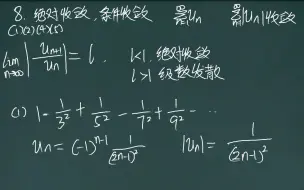 8. 绝对收敛, 条件收敛 ∞∑n=1 Un ∞∑n=1 |Un| 收敛
(1)(2)(4)(5)
lim n→∞ |Un+1/Un| = l. l<1. 绝对收敛
l>1 级数收散
(1) 1 - 1/3² + 1/5² - 1/7² + 1/9² - ...
Un = (-1)^(n-1) 1/(2n-1)² |Un| = 1/(2n-1)²